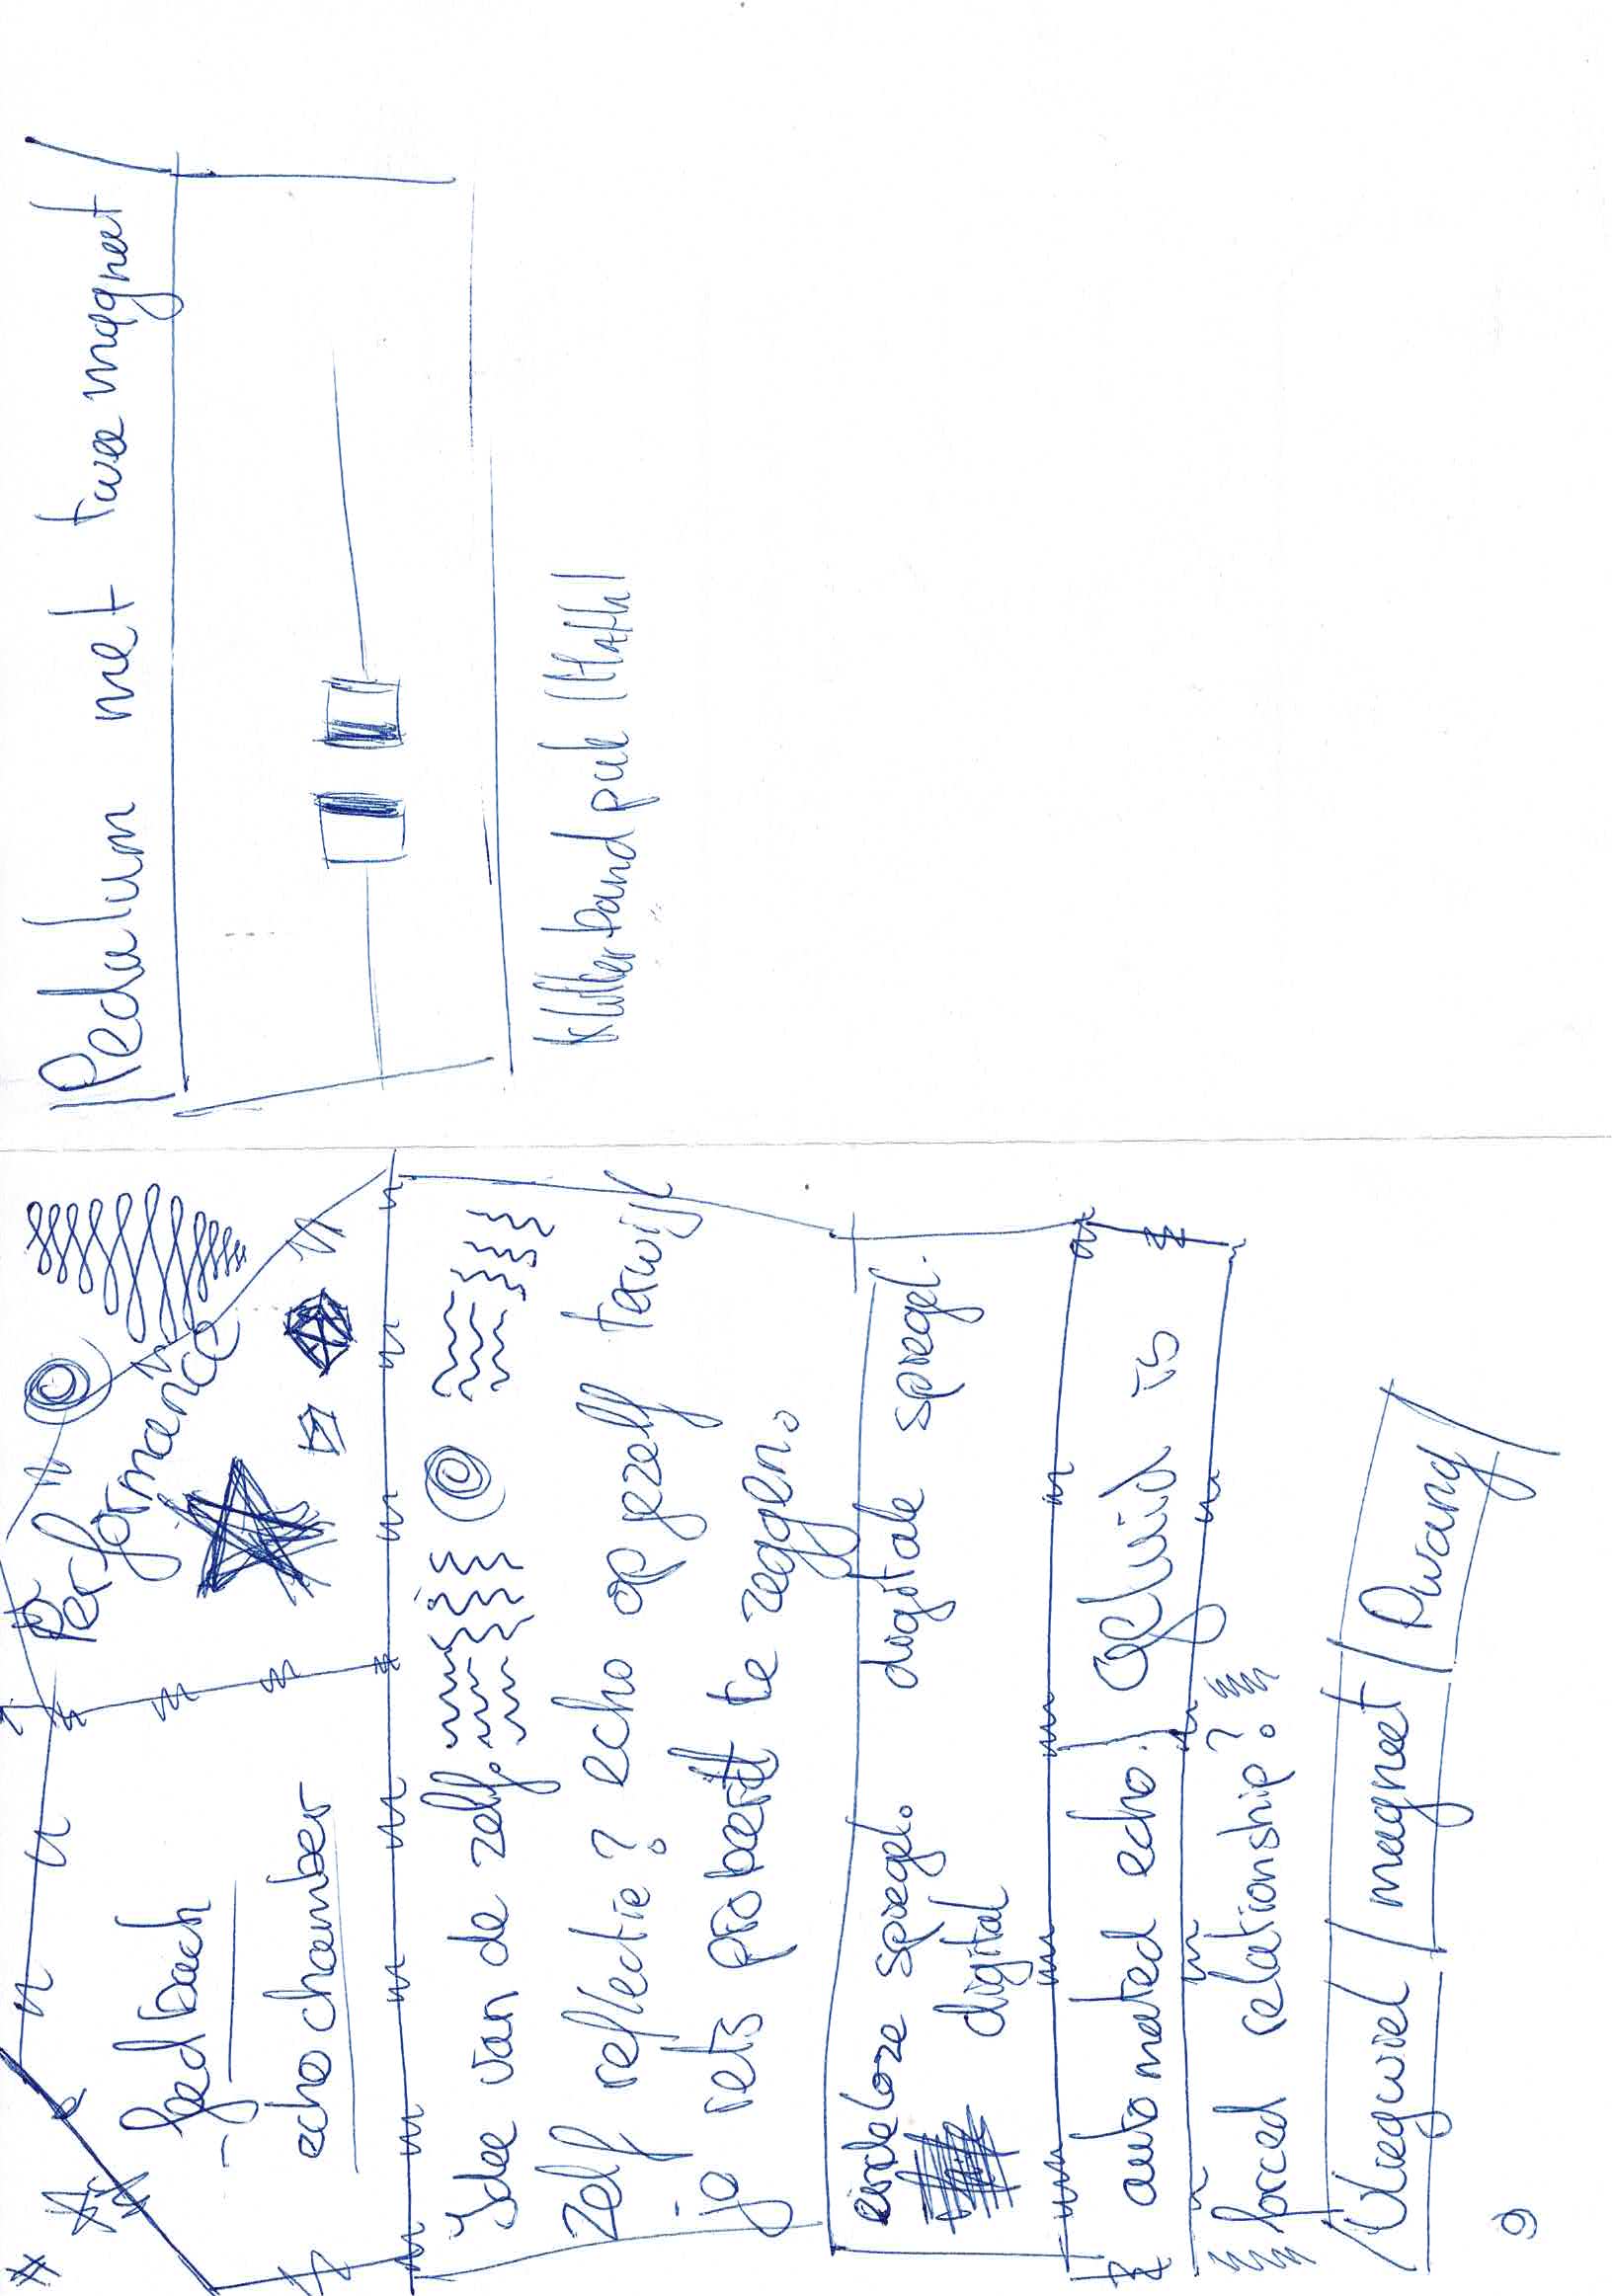 feedback
echo chamber
Performance
Idee van de zelf.
zelf reflectie? echo op jezelf terwijl
je iets probeert te zeggen.
eindeloze spiegel. digitale spiegel.
digital
automated echo. Geluid is
forced relationship?
Vliegwiel / magneet / Dwang
9
Pedalum met twee magneet
Klitterband puk